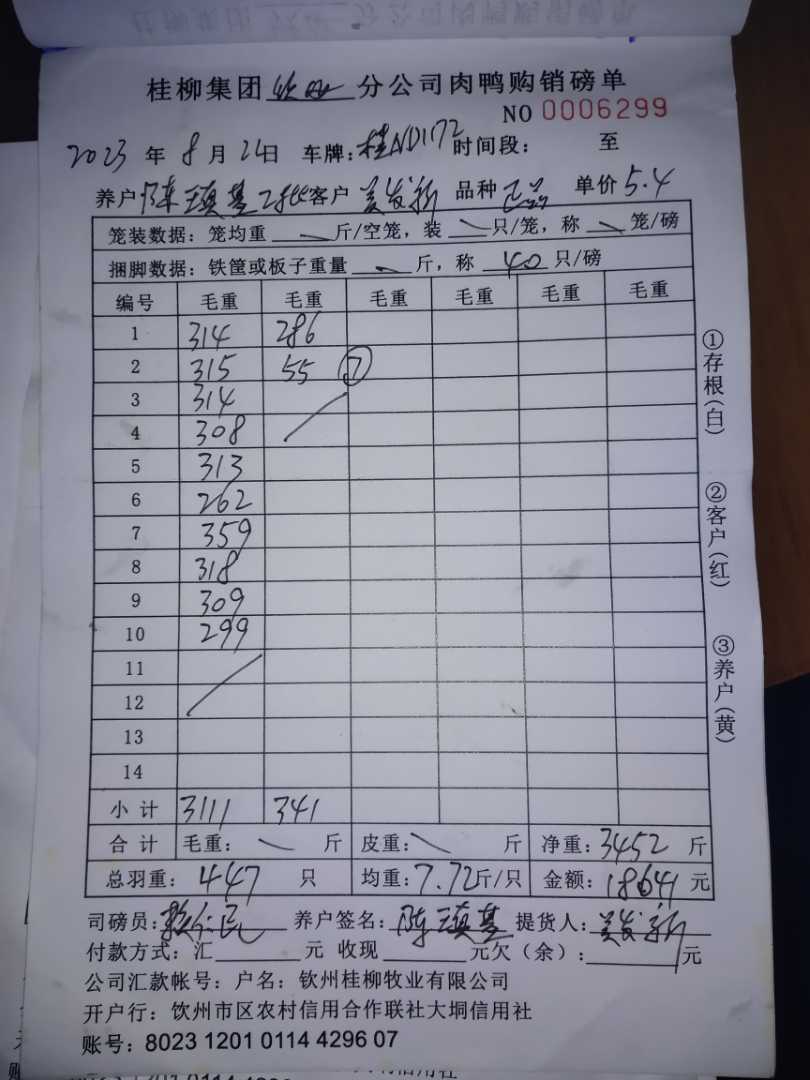 桂柳集团钦州分公司肉鸭购销磅单
NO 0006299
2023 年 8 月 24日 车牌:桂ND1172 时间段: 至
养户陈瑱基2批客户美发新 品种正品 单价5.4
笼装数据:笼均重 斤/空笼,装 只/笼,称 笼/磅
捆脚数据:铁筐或板子重量 斤,称 40 只/磅
编号 毛重 毛重 毛重 毛重 毛重 毛重
1 314 286
2 315 55 ⑦
3 314
4 308
5 313
6 262
7 359
8 318
9 309
10 299
11
12
13
14
小计 3111 341
合计 毛重: 斤 皮重: 斤 净重:3452 斤
总羽重:447 只 均重:7.72斤/只 金额:18641 元
司磅员: 养户签名:陈瑱基 提货人:美发新
付款方式:汇 元 收现 元欠(余): 元
公司汇款帐号:户名:钦州桂柳牧业有限公司
开户行:饮州市区农村信用合作联社大垌信用社
账号:8023 1201 0114 4296 07
①存根(白)
②客户(红)
③养户(黄)